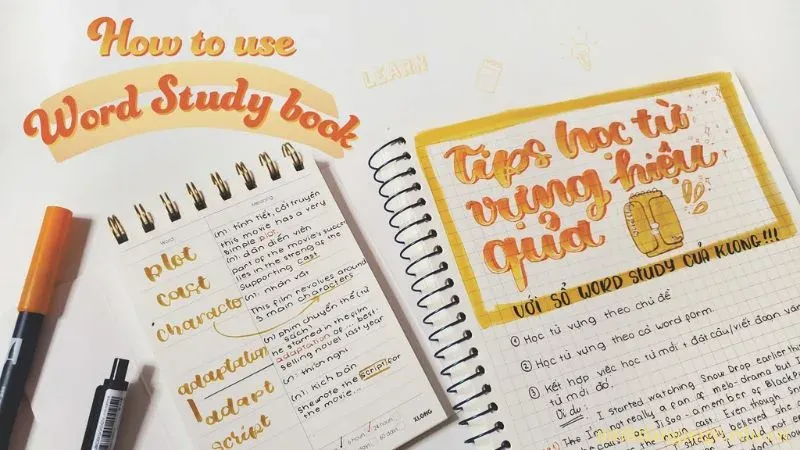 How to use
Word Study book
LEARN
Word
Meaning
plot
(n): tình tiết, cốt truyện
this movie has a very
simple plot.
cast
(n): dàn diễn viên
part of the movie's success
lies in the streng of the
supporting cast
character
(n): nhân vật
This film revolves around
3 main characters
adaptation
(n) phim chuyển thể (từ
sách)
he starred in the film
adaptation of ... best-
selling novel last year
adapt
(n): thích nghi
script
(n): kịch bản
she wrote the script for
the movie...
KLONG
Tips học từ
vựng hiệu
quả
VỚI SỔ WORD STUDY CỦA KLONG!!!
① Học từ vựng theo chủ đề
② Học từ vựng theo cả word form.
③ Kết hợp việc học từ mới + đặt câu/viết đoạn văn
từ mới đó.
Ví dụ: I started watching Snow Drop earlier this
I'm not really a fan of melo-drama but I
because of Jisoo - a member of BlackP
the main cast. Even though Sno
strongly believed she